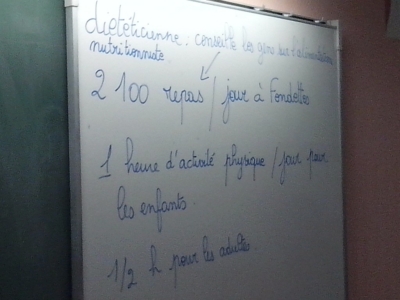 diététicienne : conseille les gens sur l'alimentation
nutritionniste
2 100 repas / jour à Fondettes
1 heure d'activité physique / jour pour
les enfants.
1/2 h pour les adultes